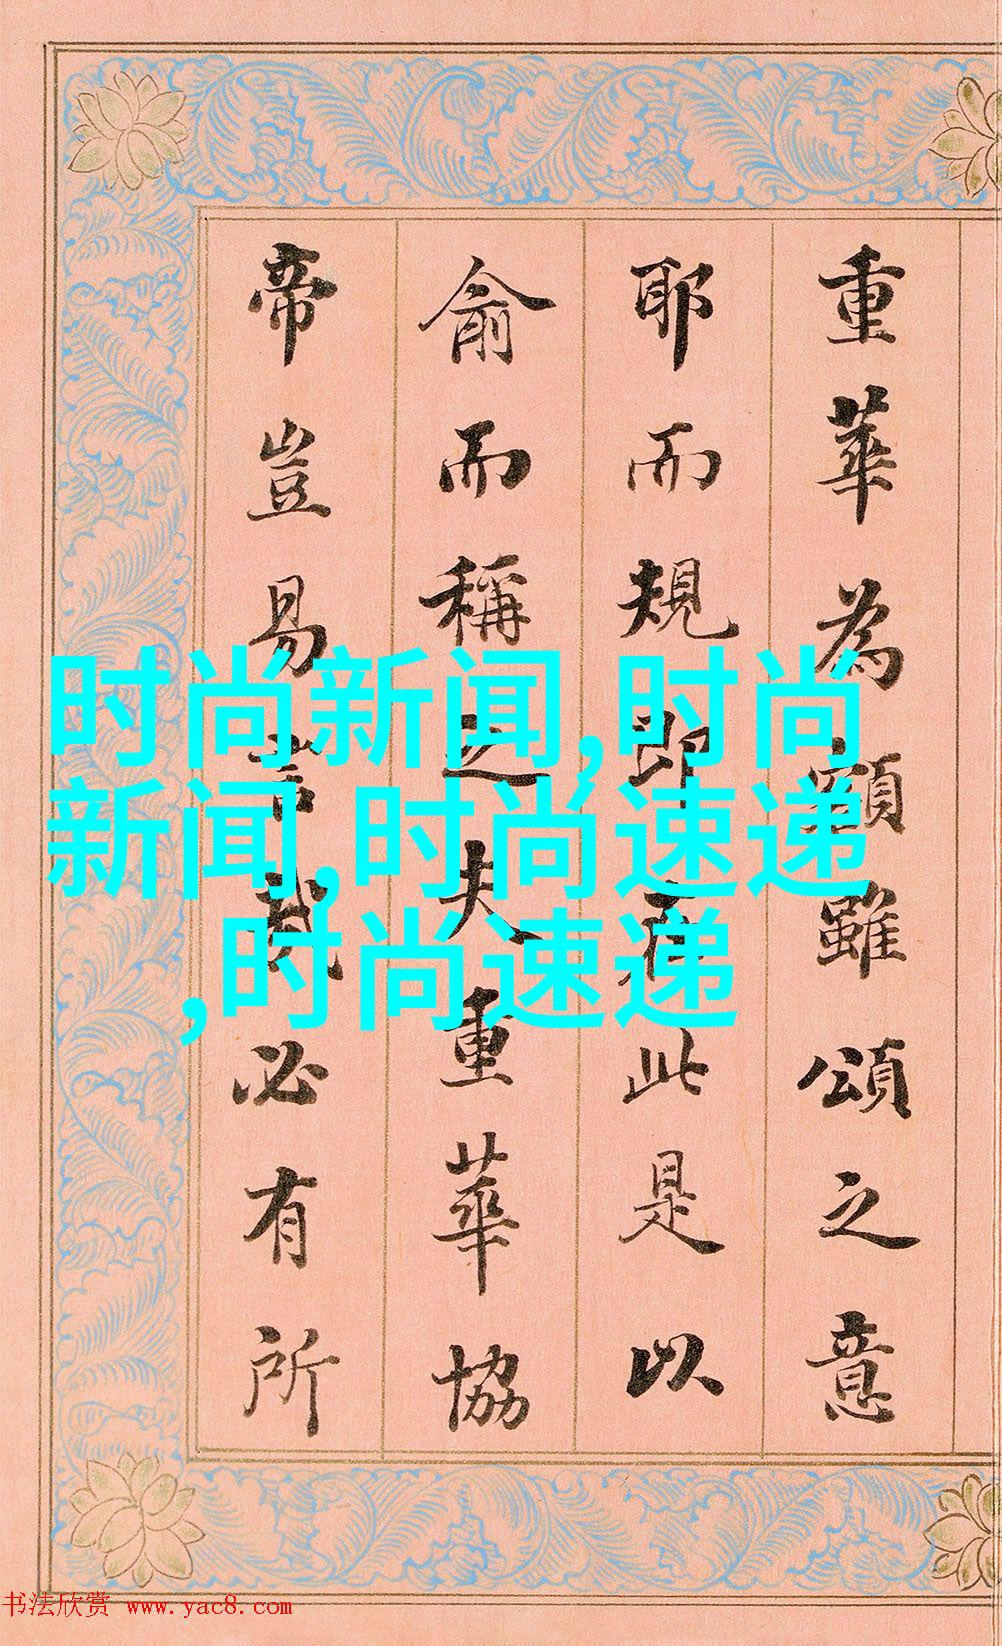 重華為額雖頌之意
耶而規即在此是以
俞而稱之夫重華協
帝豈易言哉必有所
时尚新闻,时尚
新闻,时尚速递
,时尚速递
书法欣赏 www.yac8.com